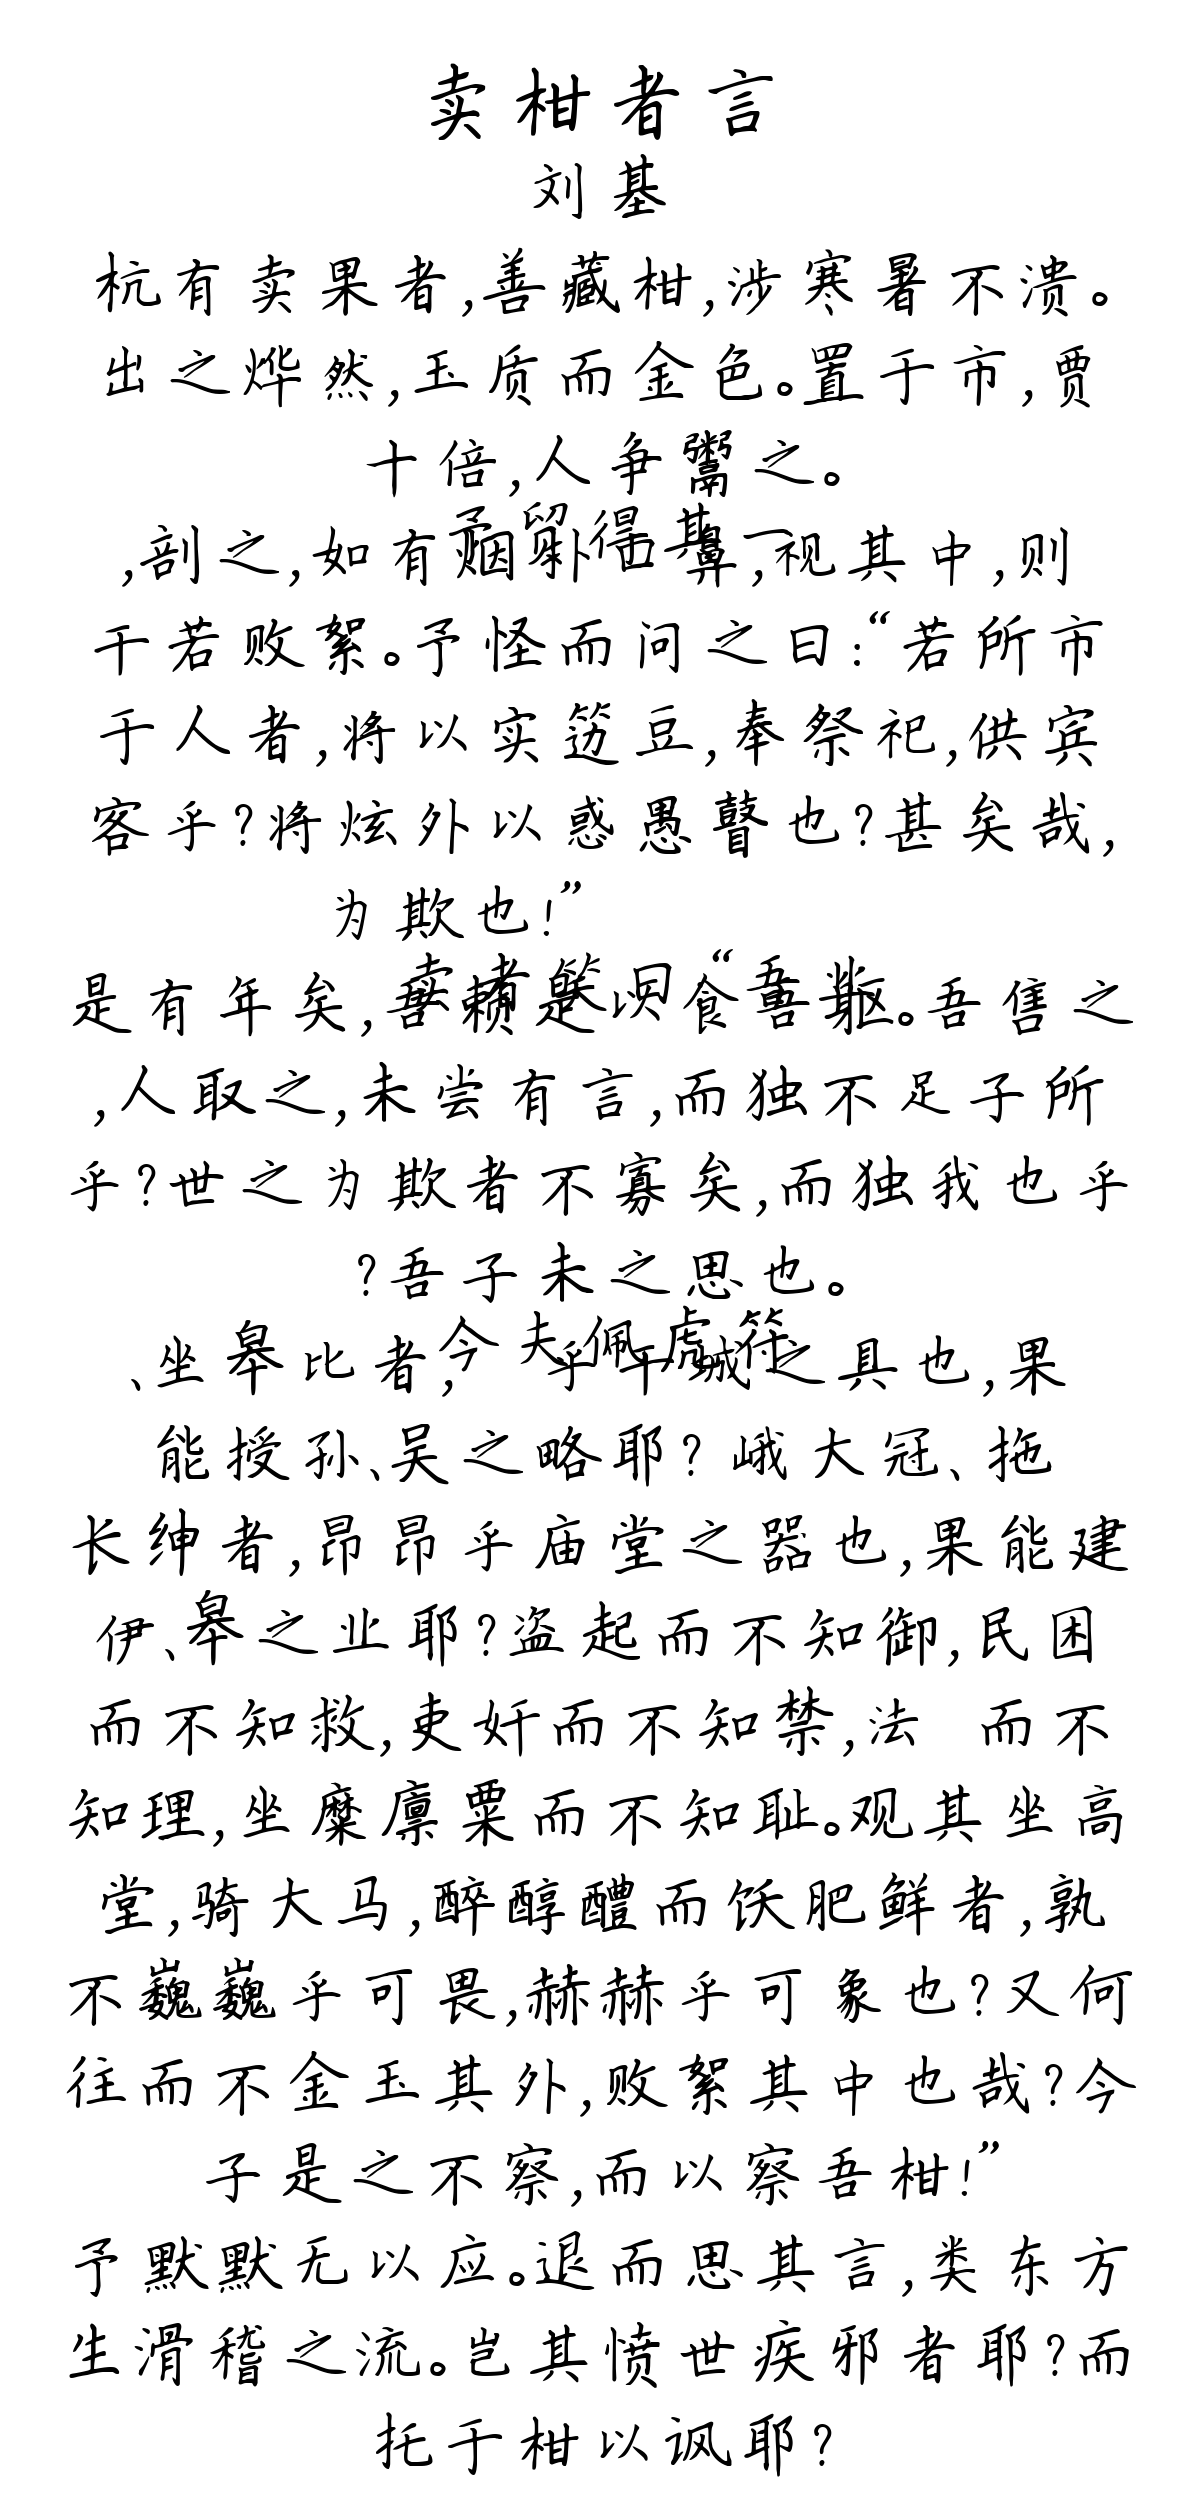 卖柑者言
刘基
杭有卖果者,善藏柑,涉寒暑不溃。
出之烨然,玉质而金色。置于市,贾
十倍,人争鬻之。
予贸得其一
,剖之,如有烟扑口鼻,视其中,则
干若败絮。予怪而问之曰:“若所市
于人者,将以实笾豆,奉祭祀,供宾
客乎?将炫外以惑愚瞽也?甚矣哉,
为欺也!”
卖者笑曰“吾业
是有年矣,吾赖是以食吾躯。吾售之
,人取之,未尝有言,而独不足子所
乎?世之为欺者不寡矣,而独我也乎
?吾子未之思也。
今夫佩虎符
、坐皋比者,乎干城之具也,果
能授孙、吴之略耶?峨大冠、拖
长绅者,昂昂乎庙堂之器也,果能建
伊、皋之业耶?盗起而不知御,民困
而不知救,吏奸而不知禁,法 而不
知理,坐糜廪粟而不知耻。观其坐高
堂,骑大马,醉醇醴而饫肥鲜者,孰
不巍巍乎可畏,赫赫乎可象也?又何
往而不金玉其外,败絮其中也哉?今
子是之不察,而以察吾柑!”
予默默无以应。退而思其言,类东方
生滑稽之流。岂其愤世疾邪者耶?而
托于柑以讽耶?